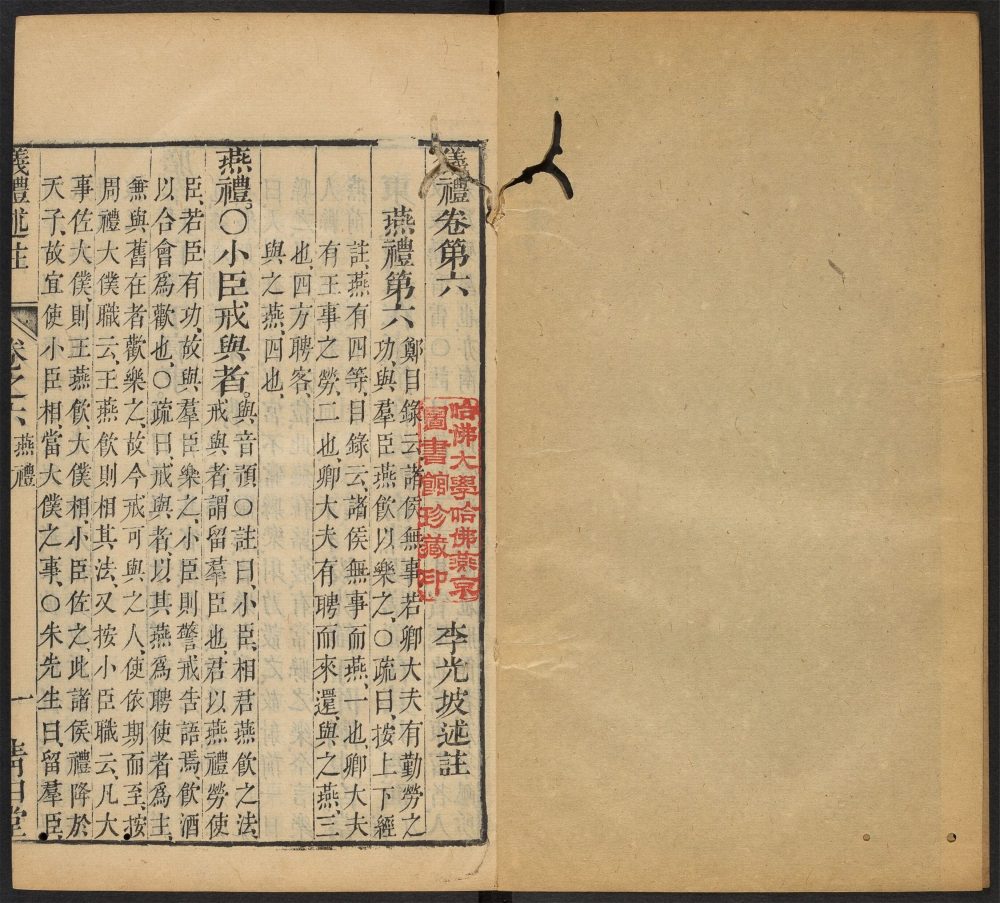 儀禮卷第六
李光坡述註
燕禮第六
鄭目錄云諸侯無事若卿大夫有勤勞之
功與羣臣燕飲以樂之○疏曰按上下經
註燕有四等目錄云諸侯無事而燕一也卿大夫
有王事之勞二也卿大夫有聘而來還與之燕三
也四方聘客
與之燕四也
燕禮○小臣戒與者
與音預○註曰小臣相君燕飲之法
戒與者謂留羣臣也君以燕禮勞使
臣若臣有功故與羣臣樂之小臣則警戒告語焉飲酒
以合會爲歡也○疏曰戒與者以其燕爲聘使者爲主
無與舊在者歡樂之故今戒可與之人使依期而至按
周禮大僕職云王燕飲則相其法又按小臣職云凡大
事佐大僕則王燕飲大僕相小臣佐之此諸侯禮降於
天子故宜使小臣相當大僕之事○朱先生曰留羣臣
儀禮述註
卷之六 燕禮
一
清白堂
哈佛大學哈佛燕京
圖書館珍藏印